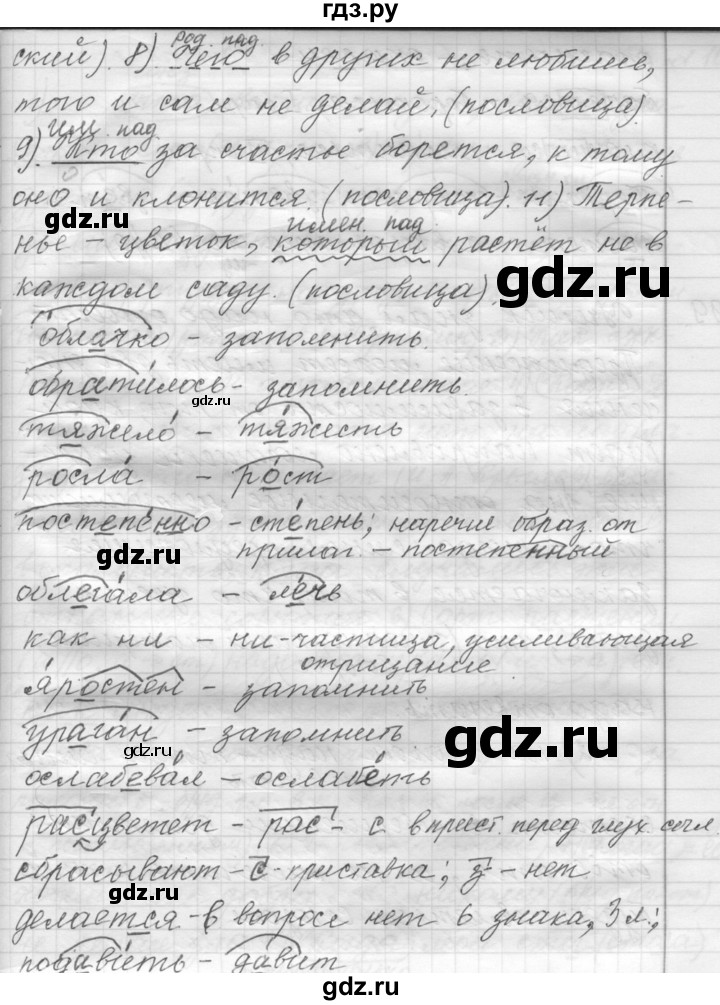 гдз.ру
род. пад.
ский). 8) Чего в других не любишь,
того и сам не делай. (пословица).
им. пад.
9) Кто за счастье борется, к тому
оно и клонится. (пословица). 11) Терпе-
gdz.ru
имен. пад.
нье – цветок, который растёт не в
каждом саду. (пословица)
gdz.ru
облачко – запомнить.
обратилось – запомнить.
gdz.ru
тяжело́ – тя́жесть
росла́ – ро́ст
постепе́нно – сте́пень; наречие образ. от
gdz.ru
прилаг. – постепенный
облега́ла – ле́чь
как ни – ни-частица, усиливающая
отрицание
я́ростен – запомнить
gdz.ru
урага́н – запомнить.
gdz.ru
ослабева́л – ослабе́ть
расцветет – рас- с. в прист. перед глух. согл.
сбрасывают – с- приставка; з- – нет
gdz.ru
делается – в вопросе нет ь знака, 3 л.;
подави́ть – да́вит
gdz.ru